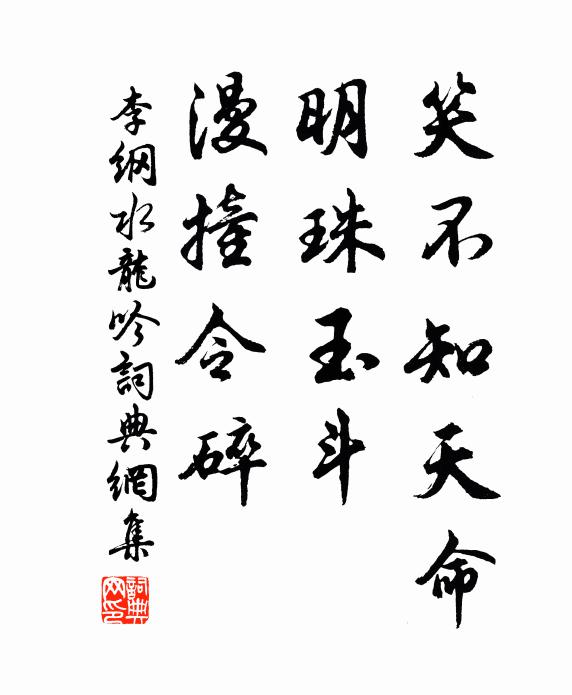 笑不知天命
明珠玉斗
漫撞令碎
李綱水龍吟詞典網集
詞典网印